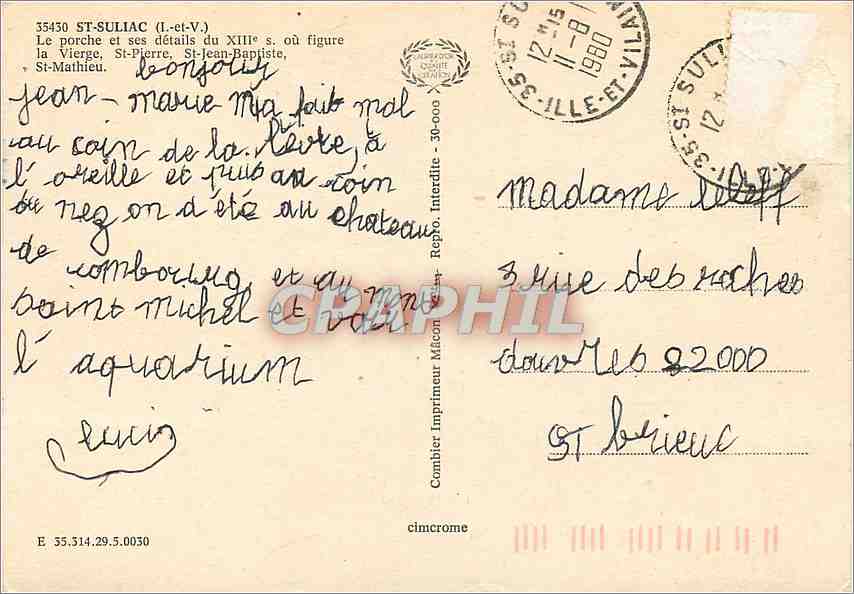 35430 ST-SULIAC (I.-et-V.)
Le porche et ses détails du XIIIe s. où figure
la Vierge, St-Pierre, St-Jean-Baptiste,
St-Mathieu.
bonjour
jean - marie m'a fait mal
au coin de la lèvre, a
l'oreille et puis au coin
du nez on a été au chateau
de combourg et au mont
saint michel et voir
l'aquarium
E 35.314.29.5.0030
LABRADOR
QUALITE
CREATION
Combier Imprimeur Mâcon
Repro. Interdite - 30-000
cimcrome
35-ST SU
12 H 15
11-8
1980
ILLE-ET-VILAINE
35-ST SULI
12 H
madame
3 rue des roches
douvres 22000
ST brieuc
CPAPHIL